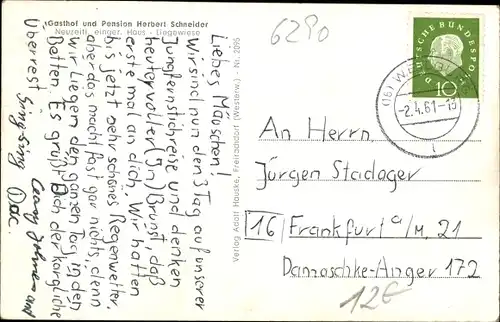 Gasthof und Pension Herbert Schneider
Neuzeitl. einger. Haus - Liegewiese
6290
Liebes Mäuschen!
Wir sind nun den 3 Tag auf unserer
Jungfernstichreise und denken
heute voller (In) Brunst, daß
erste mal an dich. Wir hatten
bis jetzt sehr schönes Regenwetter.
aber das macht fast gar nichts, denn
wir liegen den ganzen Tag in den
Batten. Es grüßt Dich der kärgliche
Überrest
Sing Sing
Doc
Georg
and
Verlag Adolf Hauske, Freirachdorf (Westerw.) - Nr. 2095
DEUTSCHE BUNDESPOST
10
(16)
-2.4.61-
An Herrn,
Jürgen Stadager
16 Frankfurt a/M, 21
Damaschke-Anger 172
12€